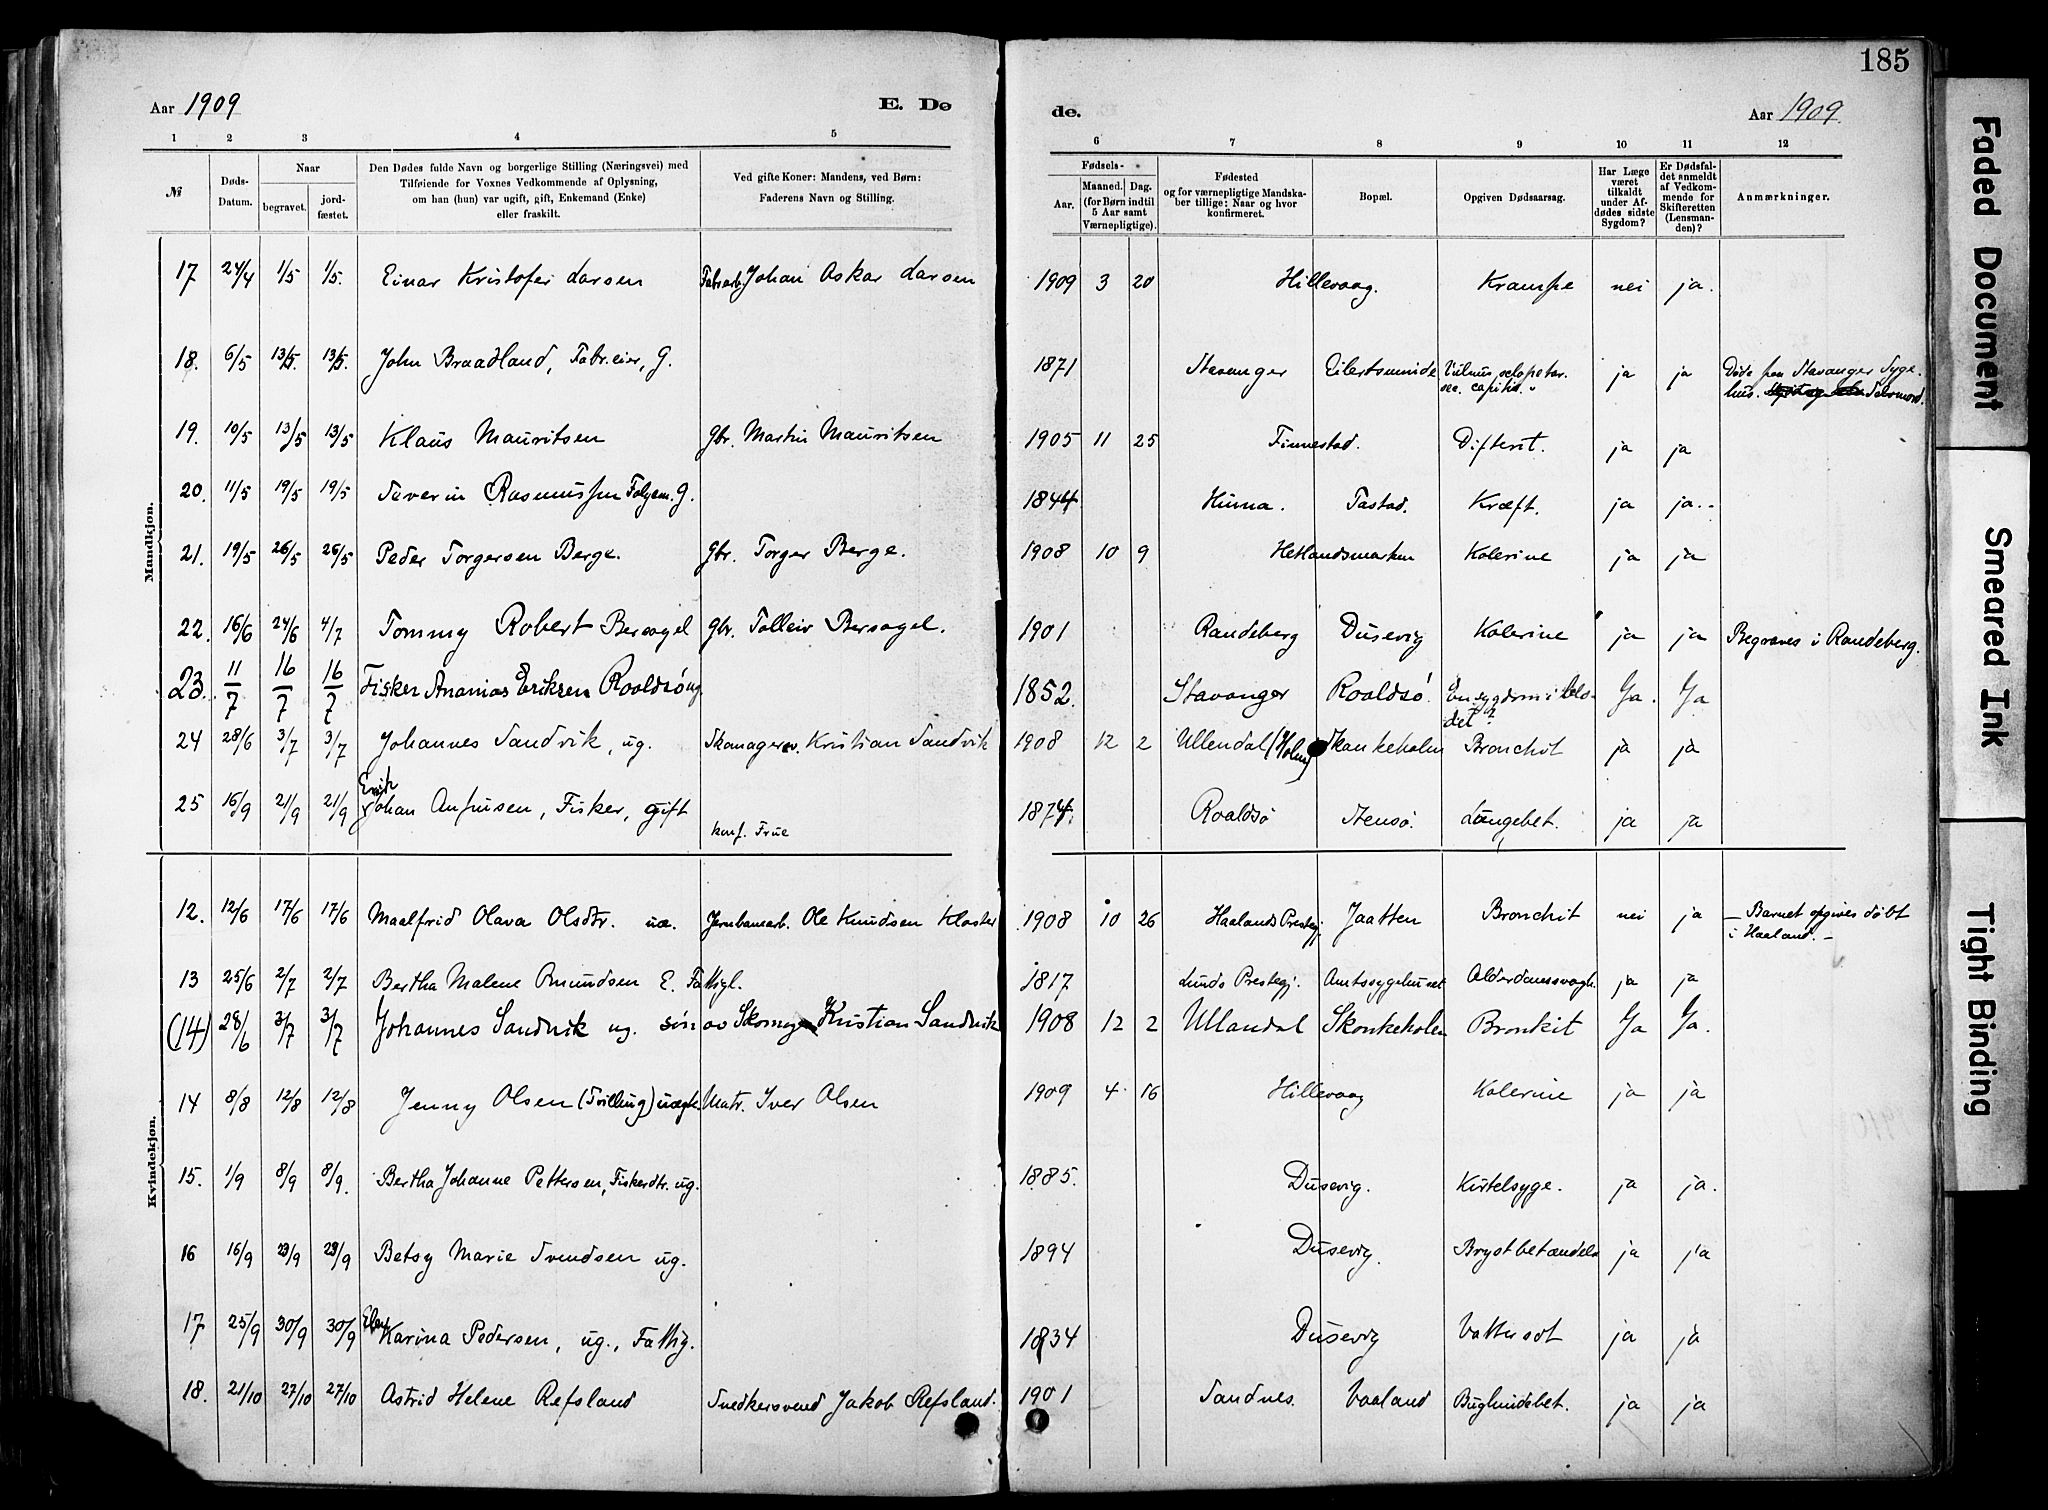 185
Aar 1909
E. Dø
de.
Aar 1909.
1 2 3 4 5 6 7 8 9 10 11 12
№
Døds-
Datum.
Naar
begravet.
jord-
fæstet.
Den Dødes fulde Navn og borgerlige Stilling (Næringsvei) med
Tilføiende for Voxnes Vedkommende af Oplysning,
om han (hun) var ugift, gift, Enkemand (Enke)
eller fraskilt.
Ved gifte Koner: Mandens, ved Børn:
Faderens Navn og Stilling.
Fødsels-
Aar.
Maaned. Dag.
(for Børn indtil
5 Aar samt
Værnepligtige).
Fødested
og for værnepligtige Mandska-
ber tillige: Naar og hvor
konfirmeret.
Bopæl.
Opgiven Dødsaarsag.
Har Læge
været
tilkaldt
under Af-
dødes sidste
Sygdom?
Er Dødsfal-
det anmeldt
af Vedkom-
mende for
Skifteretten
(Lensman-
den)?
Anmærkninger.
Mandkjøn.
17 24/4 1/5 1/5. Einar Kristofer Larsen Fabrarb. Johan Askar Larsen 1909 3 20 Hillevaag. Krampe nei ja.
18. 6/5 13/5. 13/5. John Braadland, Fabr.eier, G. 1871 Stavanger Eilertsminde Vulnus sclopetar. ja ja Døde paa Stavanger Syge-
capitis. hus. Selvmord.
19. 10/5 13/5 13/5 Klaus Mauritsen Gbr. Martin Mauritsen 1905 11 25 Finnestad. Difterit. ja ja
20. 11/5 19/5 19/5 Severin Rasmussen Følgem. G. 1844 Hinna. Tastad. Kræft. ja ja.
21. 19/5 26/5 26/5 Peder Torgersen Berge. Gbr. Torger Berge. 1908 10 9 Hetlandsmarken Kolerine ja ja
22. 16/6 24/6 4/7 Tommy Robert Bersagel Gbr. Tolleiv Bersagel. 1901 Randeberg Dusevig Kolerine ja ja Begraves i Randeberg.
23. 11/7 16/7 16/7 Fisker Ananias Eriksen Roaldsø ug. 1852. Stavanger Roaldsø En sygdom i blo- Ja. Ja
det?
24 28/6 3/7 3/7 Johannes Sandvik, ug. Skomagersv. Kristian Sandvik 1908 12 2 Ullendal (Holm) Skankeholm Bronchit ja ja
Erik
25 16/9 21/9 21/9 Johan Anfinsen, Fisker, gift 1874. Roaldsø Stensø. Lungebet. ja ja
konf. Frue
Kvindekjøn.
12. 12/6 17/6 17/6 Maalfrid Olava Olsdtr. uæ. Jernbanearb. Ole Knudsen Kloster 1908 10 26 Haalands Prestegj. Jaatten Bronchit nei ja — Barnet opgives døbt
i Haaland. —
13 25/6 2/7 2/7 Bertha Malene Omundsen E. Fattigl. 1817 Lunds Prestegj. Amtssygehuset Alderdomssvagh. ja ja
(14) 28/6 3/7 3/7 Johannes Sandvik ug. søn av Skomager Kristian Sandvik 1908 12 2 Ullandal Skonkeholm Bronkit Ja Ja.
14 8/8 12/8 12/8 Jenny Olsen (Tvilling) uægte Matr. Iver Olsen 1909 4 16 Hillevaag Kolerine ja ja
15. 1/9 8/9 8/9. Bertha Johanne Pettersen, Fiskerdtr. ug. 1885. Dusevig. Kirtelsyge. ja ja.
16 16/9 23/9 23/9 Betsy Marie Svendsen ug. 1894 Dusevig. Brystbetændelse ja ja
17 25/9 30/9 30/9 Karina Pedersen, ug., Fattig. 1834 Dusevig Vattersot ja ja
18. 21/10 27/10 27/10 Astrid Helene Refsland Snedkersvend Jakob Refsland. 1901 Sandnes. Vaaland Bughindebet. ja ja
Faded Document
Smeared Ink
Tight Binding